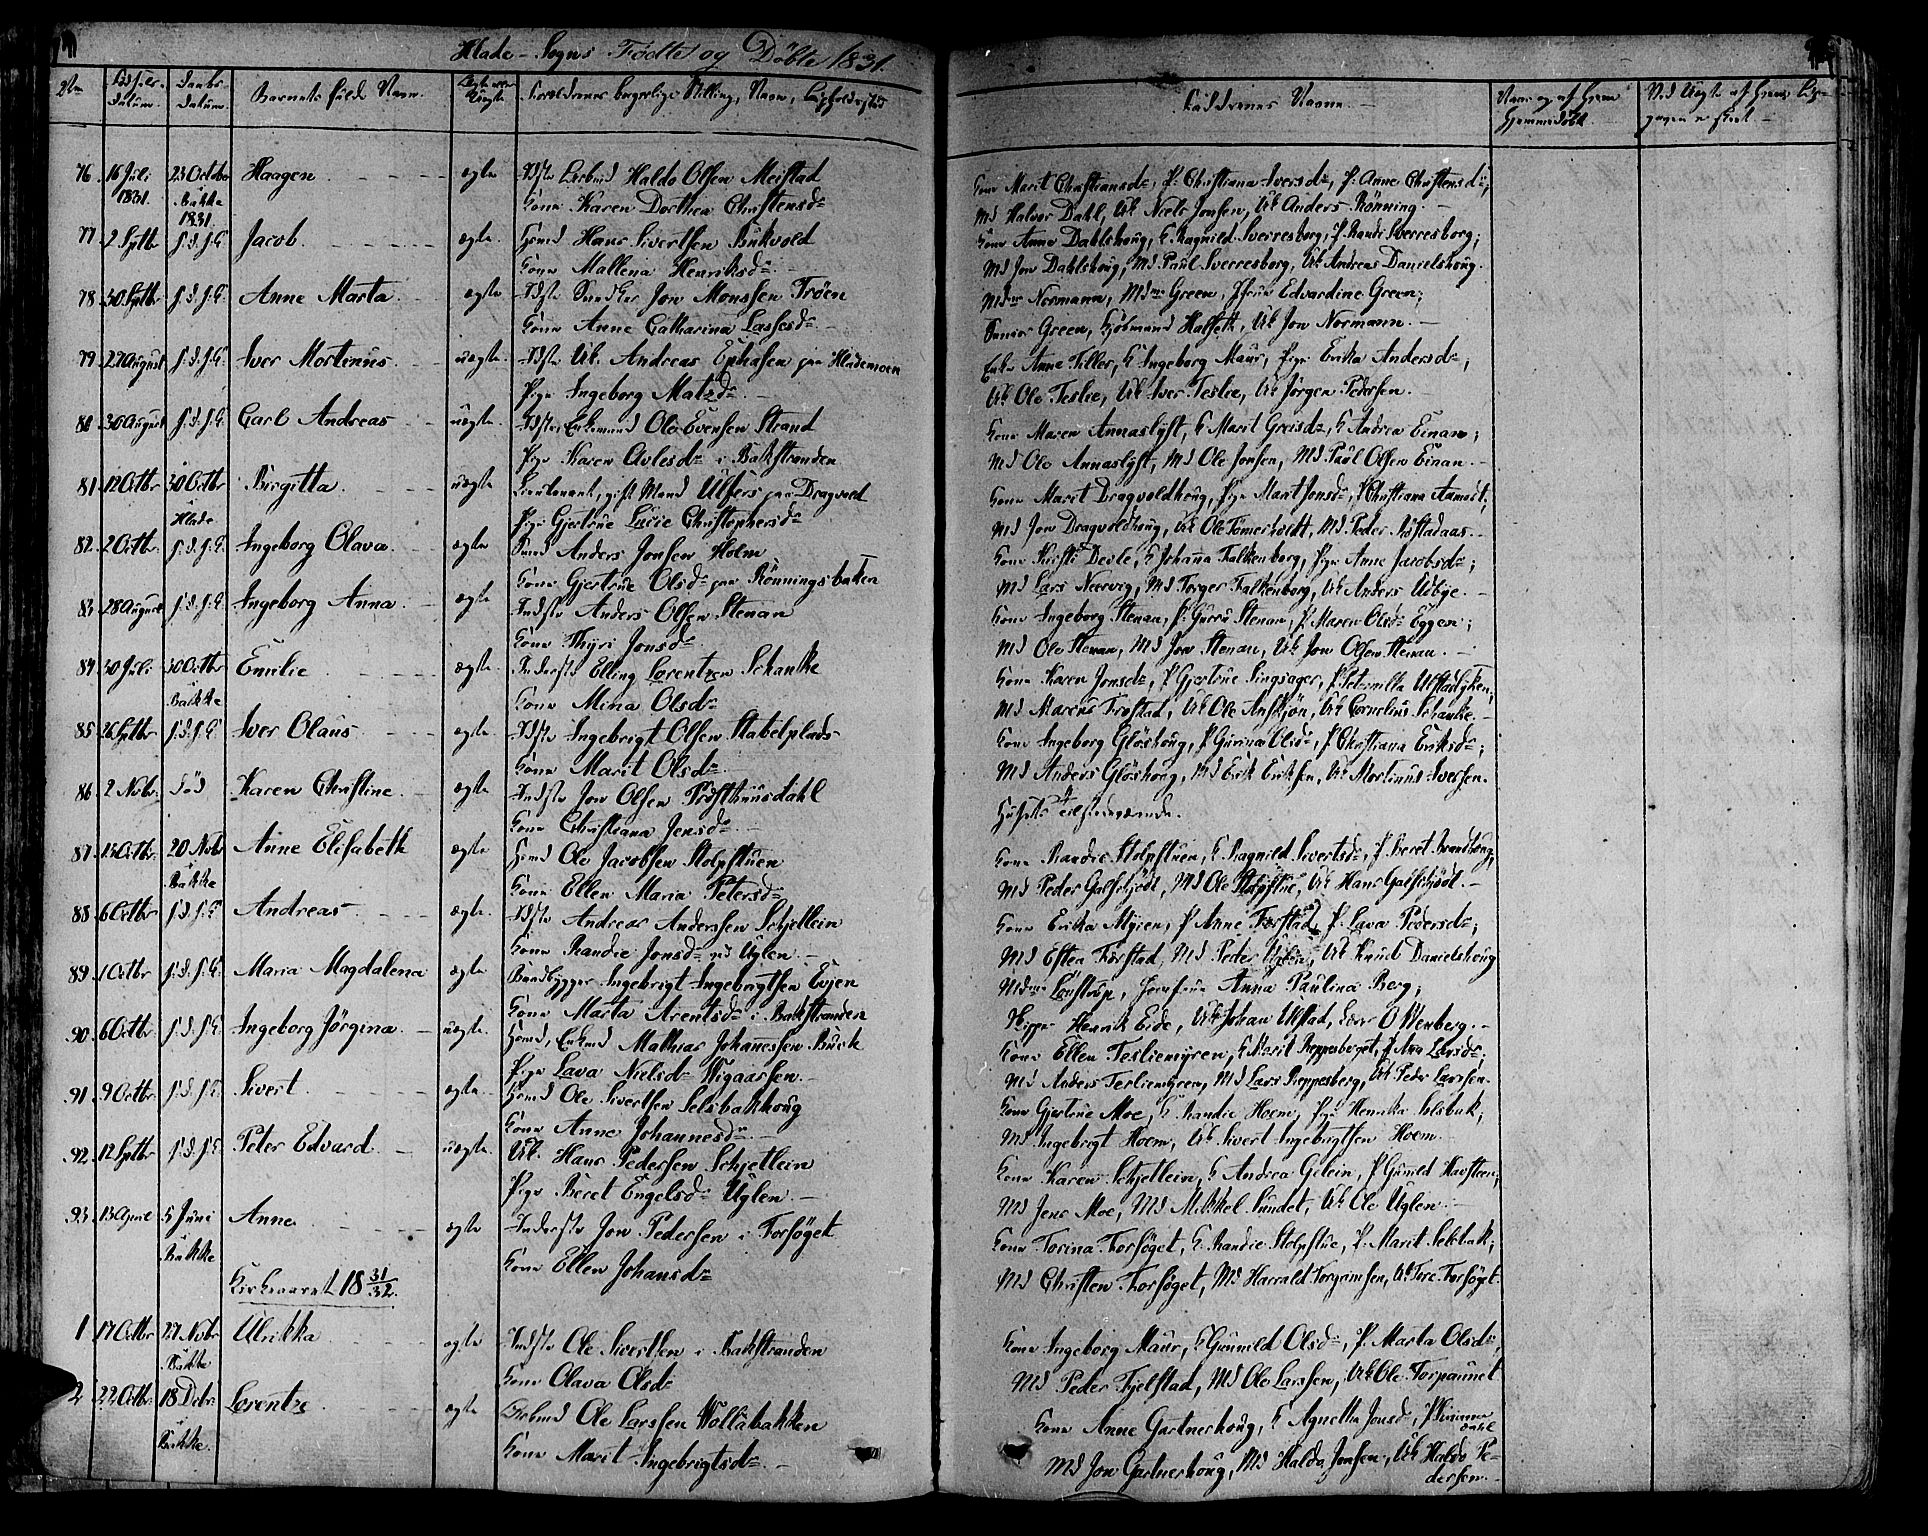 Hlade-Sogns Fødte og Döbte 1831.
No Fødsels- Datum. Daabs- Datum. Barnets fulde Navn. Ægte eller Uægte Forældrenes borgerlige Stilling, Navn, Opholdssted
Faddernes Navne.
76 16 Juli 1831. 23 Octobr Bakke 1831. Haagen ægte Indste Arbmd Haldo Olsen Meistad
Kone Karen Dorthea Christensdr
Kone Marit Christiansdr, P. Christiana Iversdr, P. Anne Christensdr,
Md Halvor Dahl, Uk Niels Jonsen, Uk Anders Rönning.
77 2 Septbr Jacob ægte Hmd Hans Sivertsen Bükvold
Kone Mallena Henriksdr
Kone Anne Dahlshoug, K. Ragnild Sverresborg, P. Randi Sverresborg;
Md Jon Dahlshoug, Md Paul Sverresborg, Uk Andreas Danielshoug.
78 30 Septbr Anne Marta ægte Jon Monssen Tröen
Kone Anne Catharina Lassesdr
Mdme Normann, Mdme Green, Jfrue Edvardine Green;
Green, Kjöbmand Halseth, Uk Jon Normann.
79 27 August Iver Mortinus uægte Indste Uk. Andreas Ephasen paa Hlademoen
Pige Ingeborg Matzdr
Enke Anne Tiller, K. Ingeborg Maur, Pige Erika Andersdr;
Uk Ole Teslie, Uk Iver Teslie, Uk Jörgen Pedersen.
80 30 August Carl Andreas uægte Indste, Enkemand Ole Evensen Strand
Pige Karen Olesdr i Bakstranden
Kone Maren Annaslyst, K Marit Greisdr, K Andrea Einan;
Md Ole Annaslyst, Md Ole Jonsen, Md Paul Olsen Einan.
81 12 Octbr 30 Octbr Hlade Birgitta uægte Lieutenant, gift Mand Ulfers paa Dragvold
Pige Gjertrue Lucie Christophersdr
Kone Marit Dragvoldhoug, Pige Marit Jonsdr, P Christiana Aamodt;
Md Jon Dragvoldhoug, Uk Ole Tömerholdt, Md Peder Röstadaas.
82 2 Octbr Ingeborg Olava ægte Anders Jonsen Holm
Kone Gjertrue Olsdr paa Rönningsbakken
Kone Kirsti Devle, K Johanna Falkenborg, Pige Anne Jacobsdr;
Md Lars Neervig, Md Torger Falkenborg, Uk Anders Udbye.
83 28 August Ingeborg Anna ægte Indste Anders Olsen Stenan
Kone Thyri Jonsdr
Kone Ingeborg Stenan, P. Gurru Stenan, P. Maren Olsdr Eggen;
Md Ole Stenan, Md Jon Stenan, Uk Jon Olsen Stenan.
84 30 Juli 30 Octbr Bakke Emilie ægte Inderste Elling Lorentzen Schanke
Kone Mina Olsdr
Kone Karen Jonsdr, P Gjertrue Singsager, P. Peternilla Ulstadlyken;
Md Marcus Frostad, Uk Ole Anskjön, Uk Cornelius Schanke.
85 26 Septbr Iver Olaus ægte Indste Ingebrigt Olsen Stabelplads
Kone Marit Olsdr
Kone Ingeborg Glöshoug, P Gurina Olsdr, P Christiana Eriksdr;
Md Anders Glöshoug, Md Erik Eriksen, Uk Mortinus Iversen.
86 2 Novbr Död Karen Christine ægte Indste Jon Olsen Presthuusdahl
Kone Christiana Jensdr
Husets tilstedeværende.
87 15 Octbr 20 Nobr Bakke Anne Elisabeth ægte Hmd Ole Jacobsen Stolpstuen
Kone Ellen Maria Petersdr
Kone Randie Stolpstuen, K Ragnild Sivertsdr, P Beret Brandhoug;
Md Peder Galschjödt, Md Ole Stolpstue, Uk Hans Galschjödt.
88 6 Octbr Andreas ægte Indste Andreas Anderssen Schjetlein
Kone Randie Jonsdr ved Uglen
Kone Erika Myren, P Anne Forstad, P. Lava Pedersdr;
Md Esten Forstad, Md Peder Uglen, Uk Knud Danielshoug
89 1 Octbr Maria Magdalena ægte Bundbygger Ingebrigt Ingebrigtsen Evjen
Kone Marta Arentsdr i Bakstranden
Mdme Lanstrup, Jomfrue Anna Paulina Berg;
Skipper Henrik Eide, Uk Johan Ulstad, Offenberg.
90 6 Octbr Ingeborg Jörgina uægte Hmd, Enkmd Mathias Johanessen Buck
Pige Lava Nielsdr Wigaassen
Kone Ellen Tesliemyren, K Marit Reppesberget, P Ana Larsdr;
Md Anders Tesliemyren, Md Lars Reppesberg, Uk Peder Larssen.
91 9 Octbr Sivert ægte Hmd Ole Sivertsen Selsbakhoug
Kone Anne Johannesdr
Kone Gjertrue Moe, K. Randie Hoem, Pige Henrika Selsbak;
Md Ingebrigt Hoem, Uk Sivert Ingebrigtsen Hoem
92 12 Septbr Peter Edvard uægte Uk. Hans Pedersen Schjetlein
Pige Beret Engelsdr Uglen
Kone Karen Schjetlein, K Andrea Gilein, P Gunild Havsteen;
Md Jens Moe, Md Mikkel Sundet, Uk Ole Uglen
93 13 April 5 Juni Bakke Anne ægte Inderste Jon Pedersen i Forsöget
Kone Ellen Johansdr
Kone Torina Forsöget, K. Randie Stolpstue, P. Marit Selsbak;
Md Christen Forsöget, Md Harrald Torgrimsen, Uk Tore Forsöget.
Kirkeaaret 18 31/32.
1 17 Octbr 27 Nobr Bakke Ulrikka ægte Indste Ole Sivertsen i Bakstranden
Kone Olava Olsdr
Kone Ingeborg Maur, K Gunnild Olsdr, P. Marta Olsdr,
Md Peder Fjelstad, Md Ole Larssen, Uk Ole Forpaunet
2 22 Octbr 18 Debr Bakke. Lorentze ægte Arbmd Ole Larssen Wollabakken
Kone Marit Ingebrigtsdr
Kone Anne Gartnerhoug, K Agnetha Jonsdr,
Md Jon Gartnerhoug, Md Haldo Jonsen, Uk Haldo Pe-
dersen.